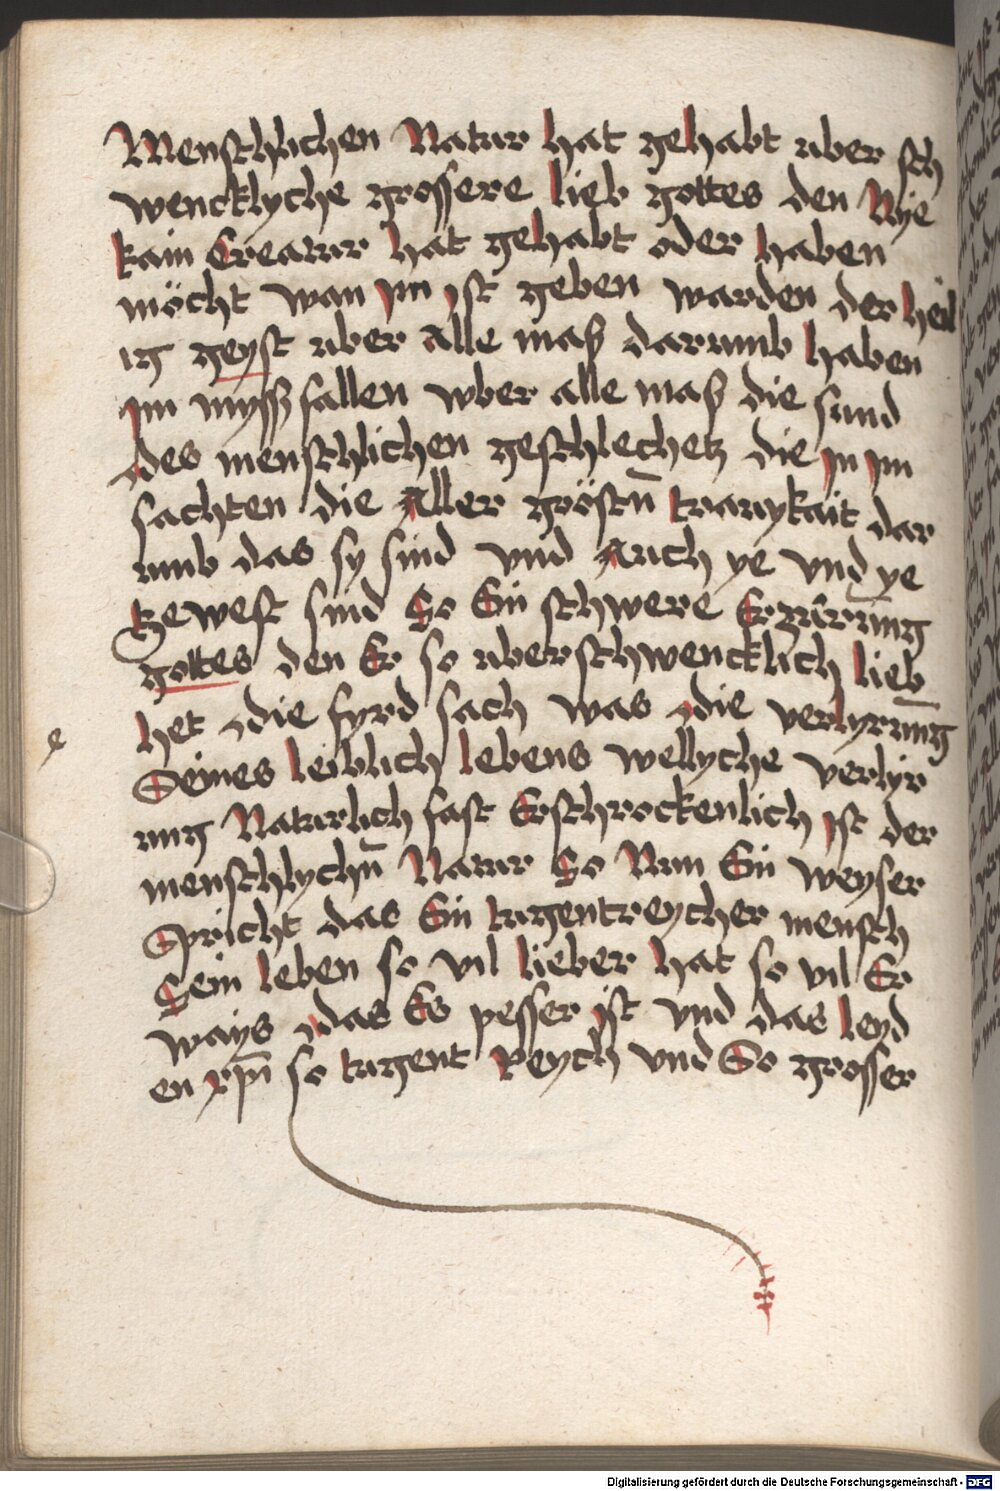 Menschlichen Natur hat gehabt uber sch
wencklyche grossere lieb gottes den Nye
kain Creatur hat gehabt oder haben
möcht wan jm jst geben warden der heil
ig geyst uber alle maß darumb haben
jm myßfallen wber alle maß die sund
des menschlichen geschlechetz die jn jm
sachten die Aller gröstn̄ traurykait dar
umb das sy sind vnd Auch ye vnd ye
gewest sind So Ein schwere Erzürūng
gottes den Er so uberschwencklich lieb
het die fyrd sach was die verlyrūng
Seines leiblich lebens wellyche verlyr
ung Naturlich fast Erschrockenlich jst der
menschlychn̄ Natur So Nun Ein weyser
Spricht das Ein tugentreycher mensch
Sein leben so vil lieber hat so vil Er
ways das Es pesser jst vnd das leyd
en xp̄i so tugent Reych vnd So grosser
Digitalisierung gefördert durch die Deutsche Forschungsgemeinschaft - DFG